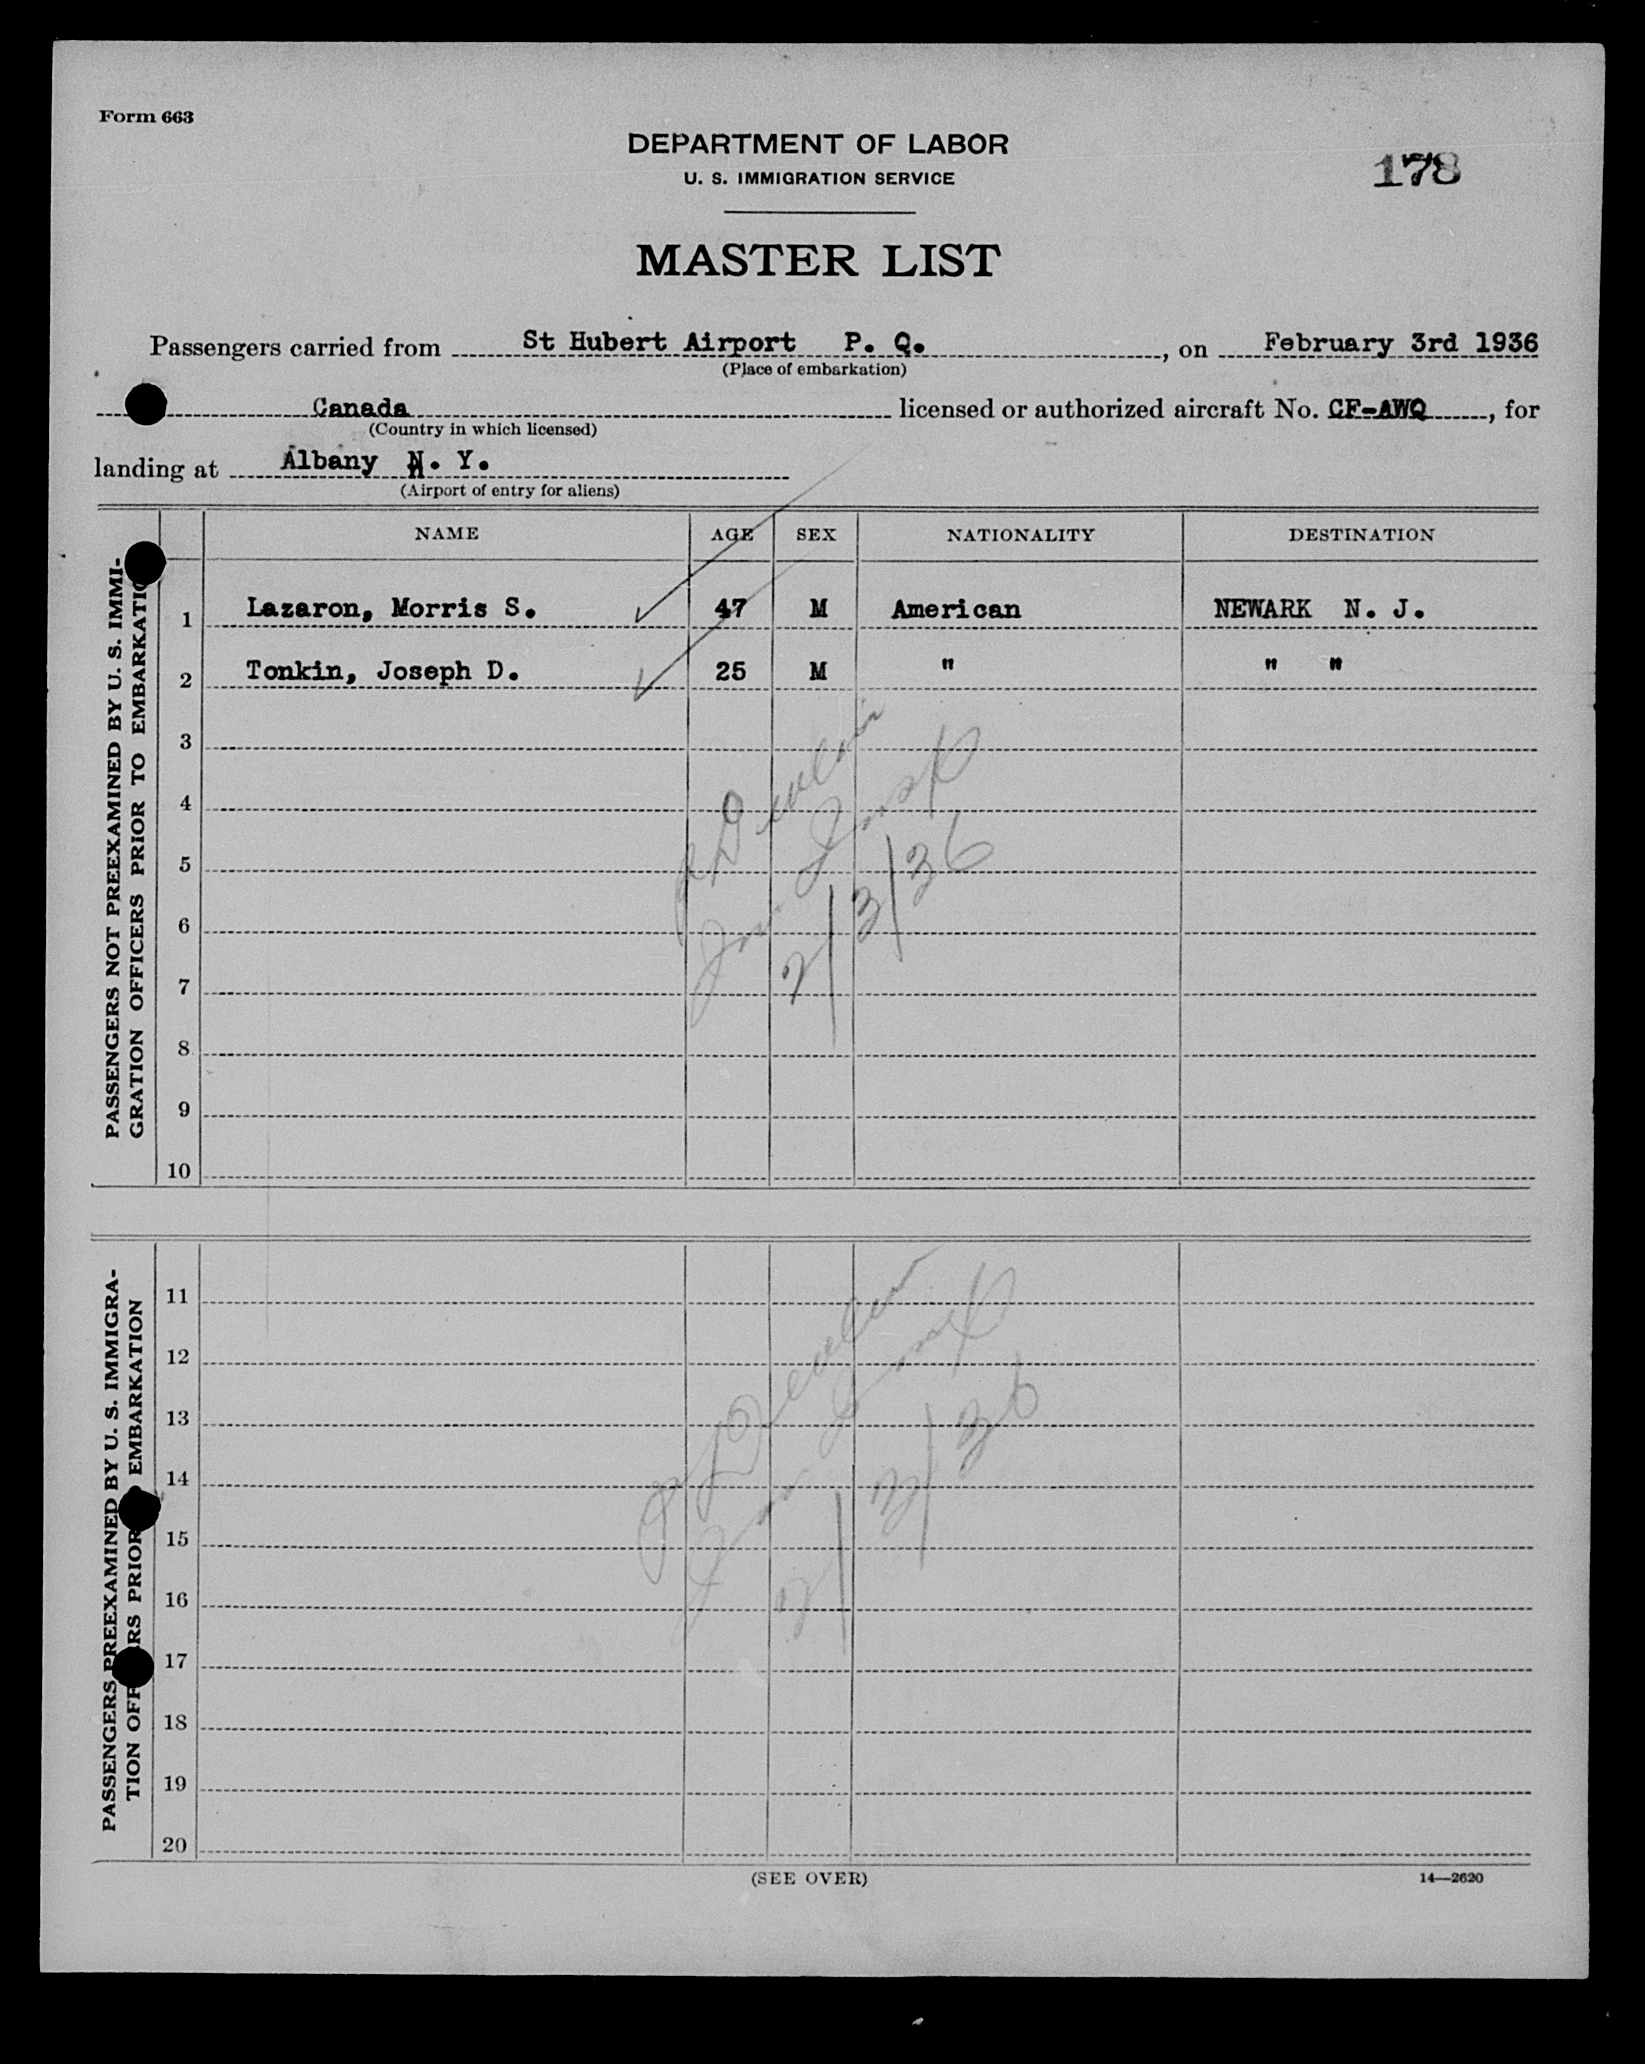 Form 663
DEPARTMENT OF LABOR
U. S. IMMIGRATION SERVICE
178
MASTER LIST
Passengers carried from St Hubert Airport P. Q., on February 3rd 1936
(Place of embarkation)
Canada licensed or authorized aircraft No. CF-AWQ, for
(Country in which licensed)
landing at Albany N. Y.
(Airport of entry for aliens)
NAME AGE SEX NATIONALITY DESTINATION
PASSENGERS NOT PREEXAMINED BY U. S. IMMI-
GRATION OFFICERS PRIOR TO EMBARKATIO
1 Lazaron, Morris S. 47 M American NEWARK N. J.
2 Tonkin, Joseph D. 25 M " " "
3
4
5
6
7
8
9
10
Imm. Inspt
2/3/36
PASSENGERS PREEXAMINED BY U. S. IMMIGRA-
TION OFF RS PRIOR EMBARKATION
11
12
13
14
15
16
17
18
19
20
Imm Inspt
2/3/36
(SEE OVER)
14—2620